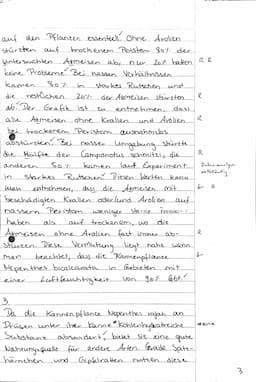 auf den Pflanzen essentiell. Ohne Arolien
stürzten auf trockenem Peristom 80% der
untersuchten Ameisen ab, nur 20% hatten
keine Probleme. Bei nassen Verhältnissen R R
kamen 80% in starkes Rutschen und
die restlichen 20% der Ameisen stürzten
ab. Der Grafik ist zu entnehmen, dass R
alle Ameisen ohne Krallen und Arolien
bei trockenem Peristom ausnahmslos R
abstürzten. Bei nasser Umgebung stürzte
die Hälfte der Camponotus schmitzi, die
anderen 50% kamen laut Experiment
in starkes Rutschen. Diesen Werten kann
man entnehmen, dass die Ameisen mit
beschädigten Krallen oder/und Arolien auf
nassem Peristom weniger
haben als auf trockenem, wo die
Ameisen ohne Arolien fast immer ab- R
stürzen. Diese Vermutung liegt nahe wenn
man beachtet, dass die Kannenpflanze
Nepenthes bicalcarata in Gebieten mit
einer Luftfeuchtigkeit von 90% lebt.
3.
Da die Kannenpflanze Nepenthes rajah an
Drüsen unter ihrer Kanne kohlenhydratreiche
Substanz absondert, bietet sie eine gute
Nahrungsquelle für andere Arten. Gerade Spitz-
hörnchen und Gipfelratten nutzen diese
3